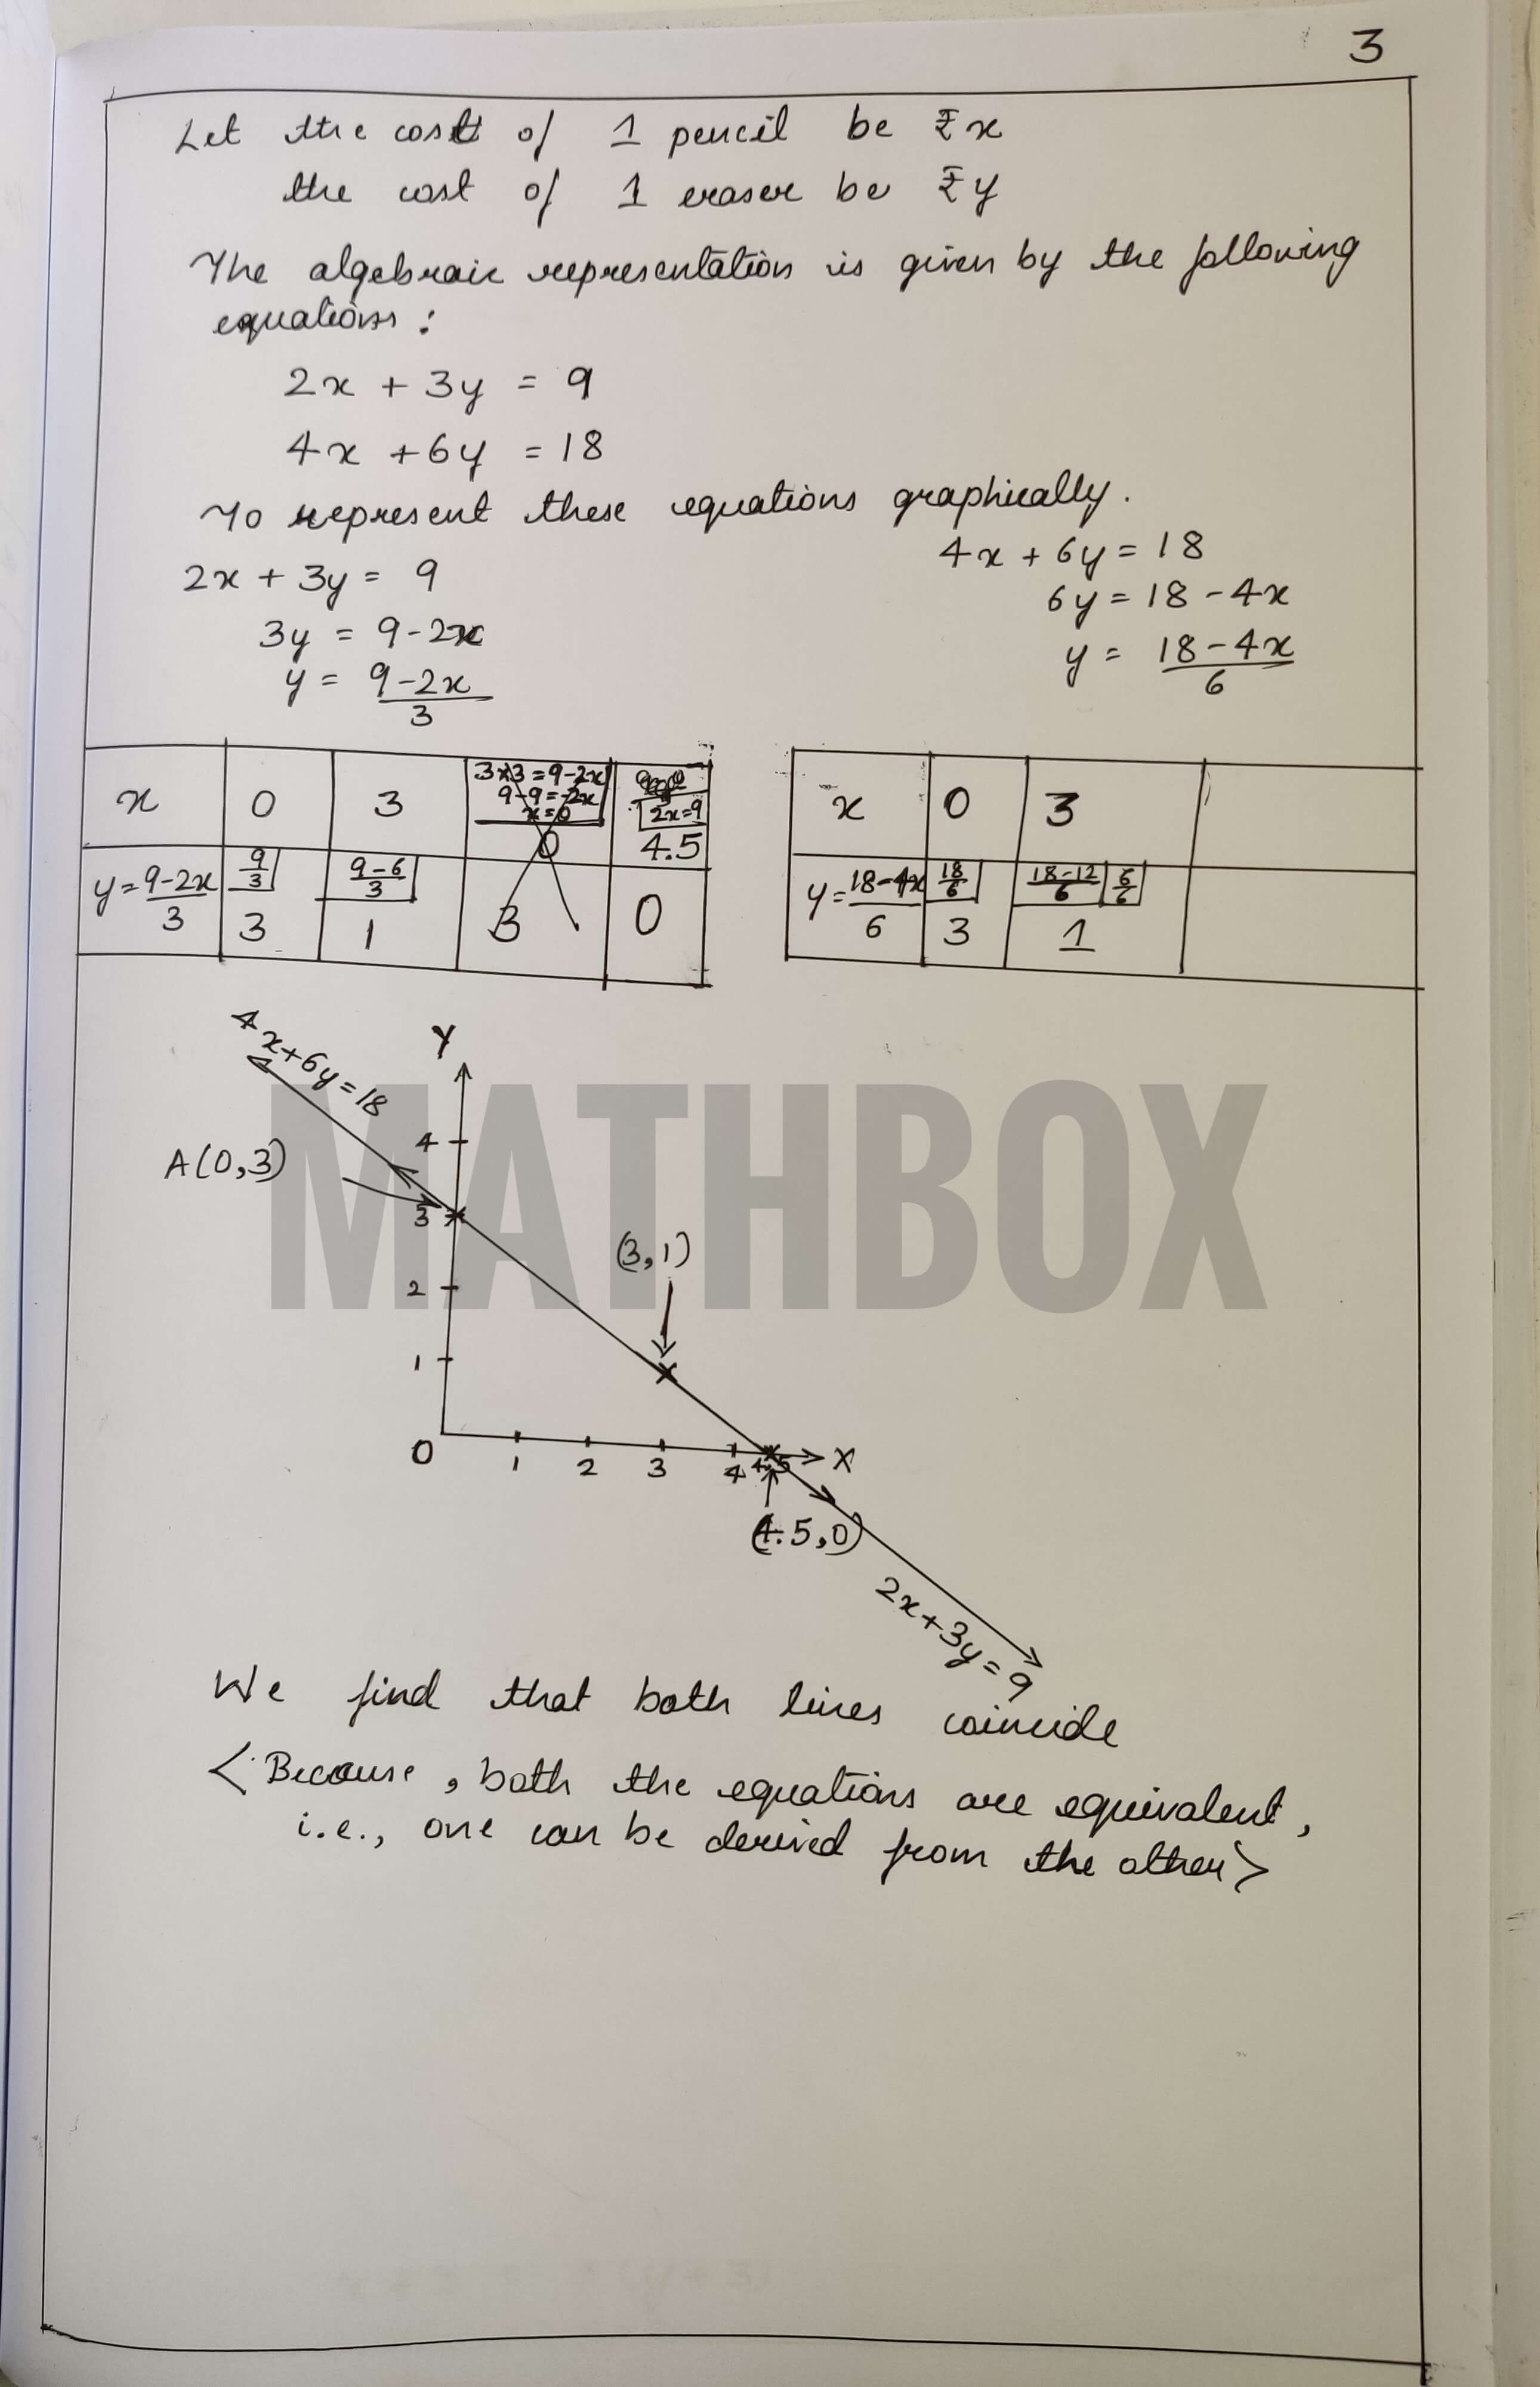 3
Let the cost of 1 pencil be ₹x
the cost of 1 eraser be ₹y
The algebraic representation is given by the following
equations :
2x + 3y = 9
4x + 6y = 18
To represent these equations graphically.
2x + 3y = 9
3y = 9-2x
y = 9-2x/3
4x + 6y = 18
6y = 18 - 4x
y = 18-4x/6
x 0 3 4.5
3x3=9-2x
9-9=-2x
x=0
0
2x=9
y=9-2x/3 9/3 9-6/3
3 1 3 0
x 0 3
y=18-4x/6 18/6 18-12/6 6/6
3 1
4x+6y=18
Y
4
A(0,3)
3
(3,1)
2
1
O 1 2 3 4 4.5 X
(4.5,0)
2x+3y=9
MATHBOX
We find that both lines coincide
<Because, both the equations are equivalent,
i.e., one can be derived from the other>